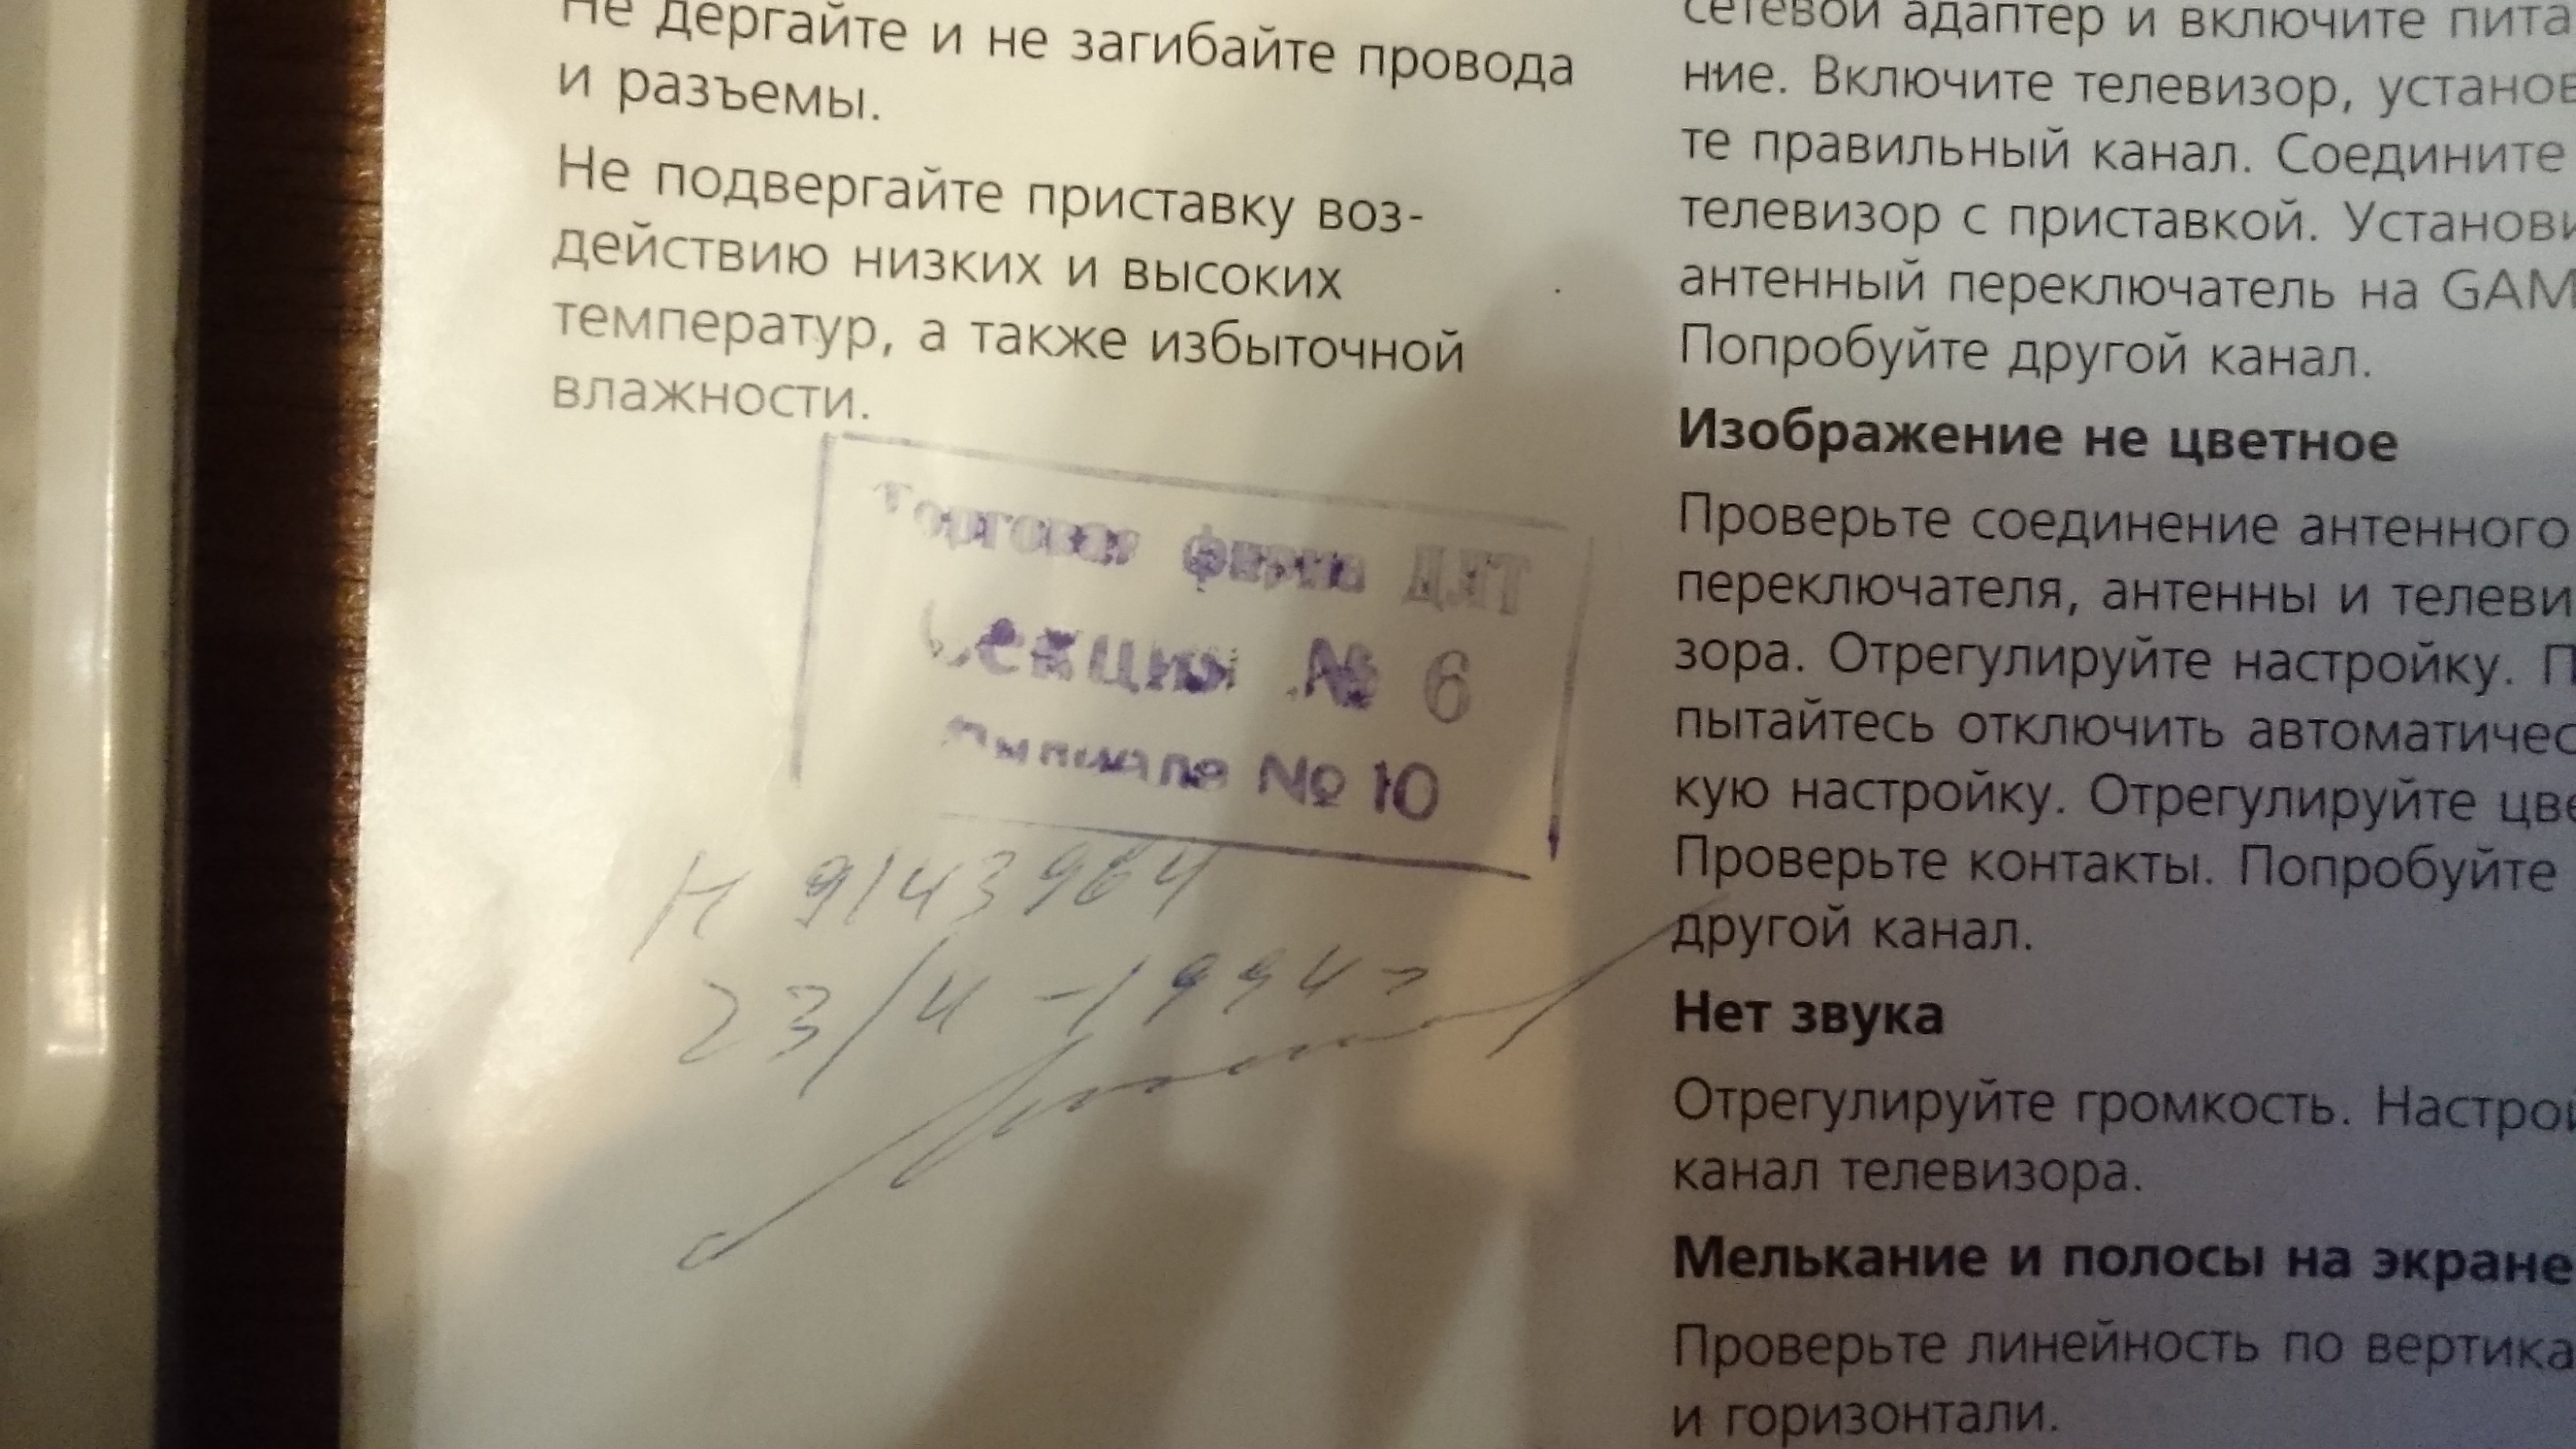 Не дергайте и не загибайте провода
и разъемы.
Не подвергайте приставку воз-
действию низких и высоких
температур, а также избыточной
влажности.
Торговая фирма ДЛТ
Секция № 6
№ 10
Н 9143964
23/4-1994г
сетевой адаптер и включите пита
ние. Включите телевизор, установ
те правильный канал. Соедините
телевизор с приставкой. Установи
антенный переключатель на GAM
Попробуйте другой канал.
Изображение не цветное
Проверьте соединение антенного
переключателя, антенны и телеви
зора. Отрегулируйте настройку. П
пытайтесь отключить автоматичес
кую настройку. Отрегулируйте цве
Проверьте контакты. Попробуйте
другой канал.
Нет звука
Отрегулируйте громкость. Настрой
канал телевизора.
Мелькание и полосы на экране
Проверьте линейность по вертика
и горизонтали.